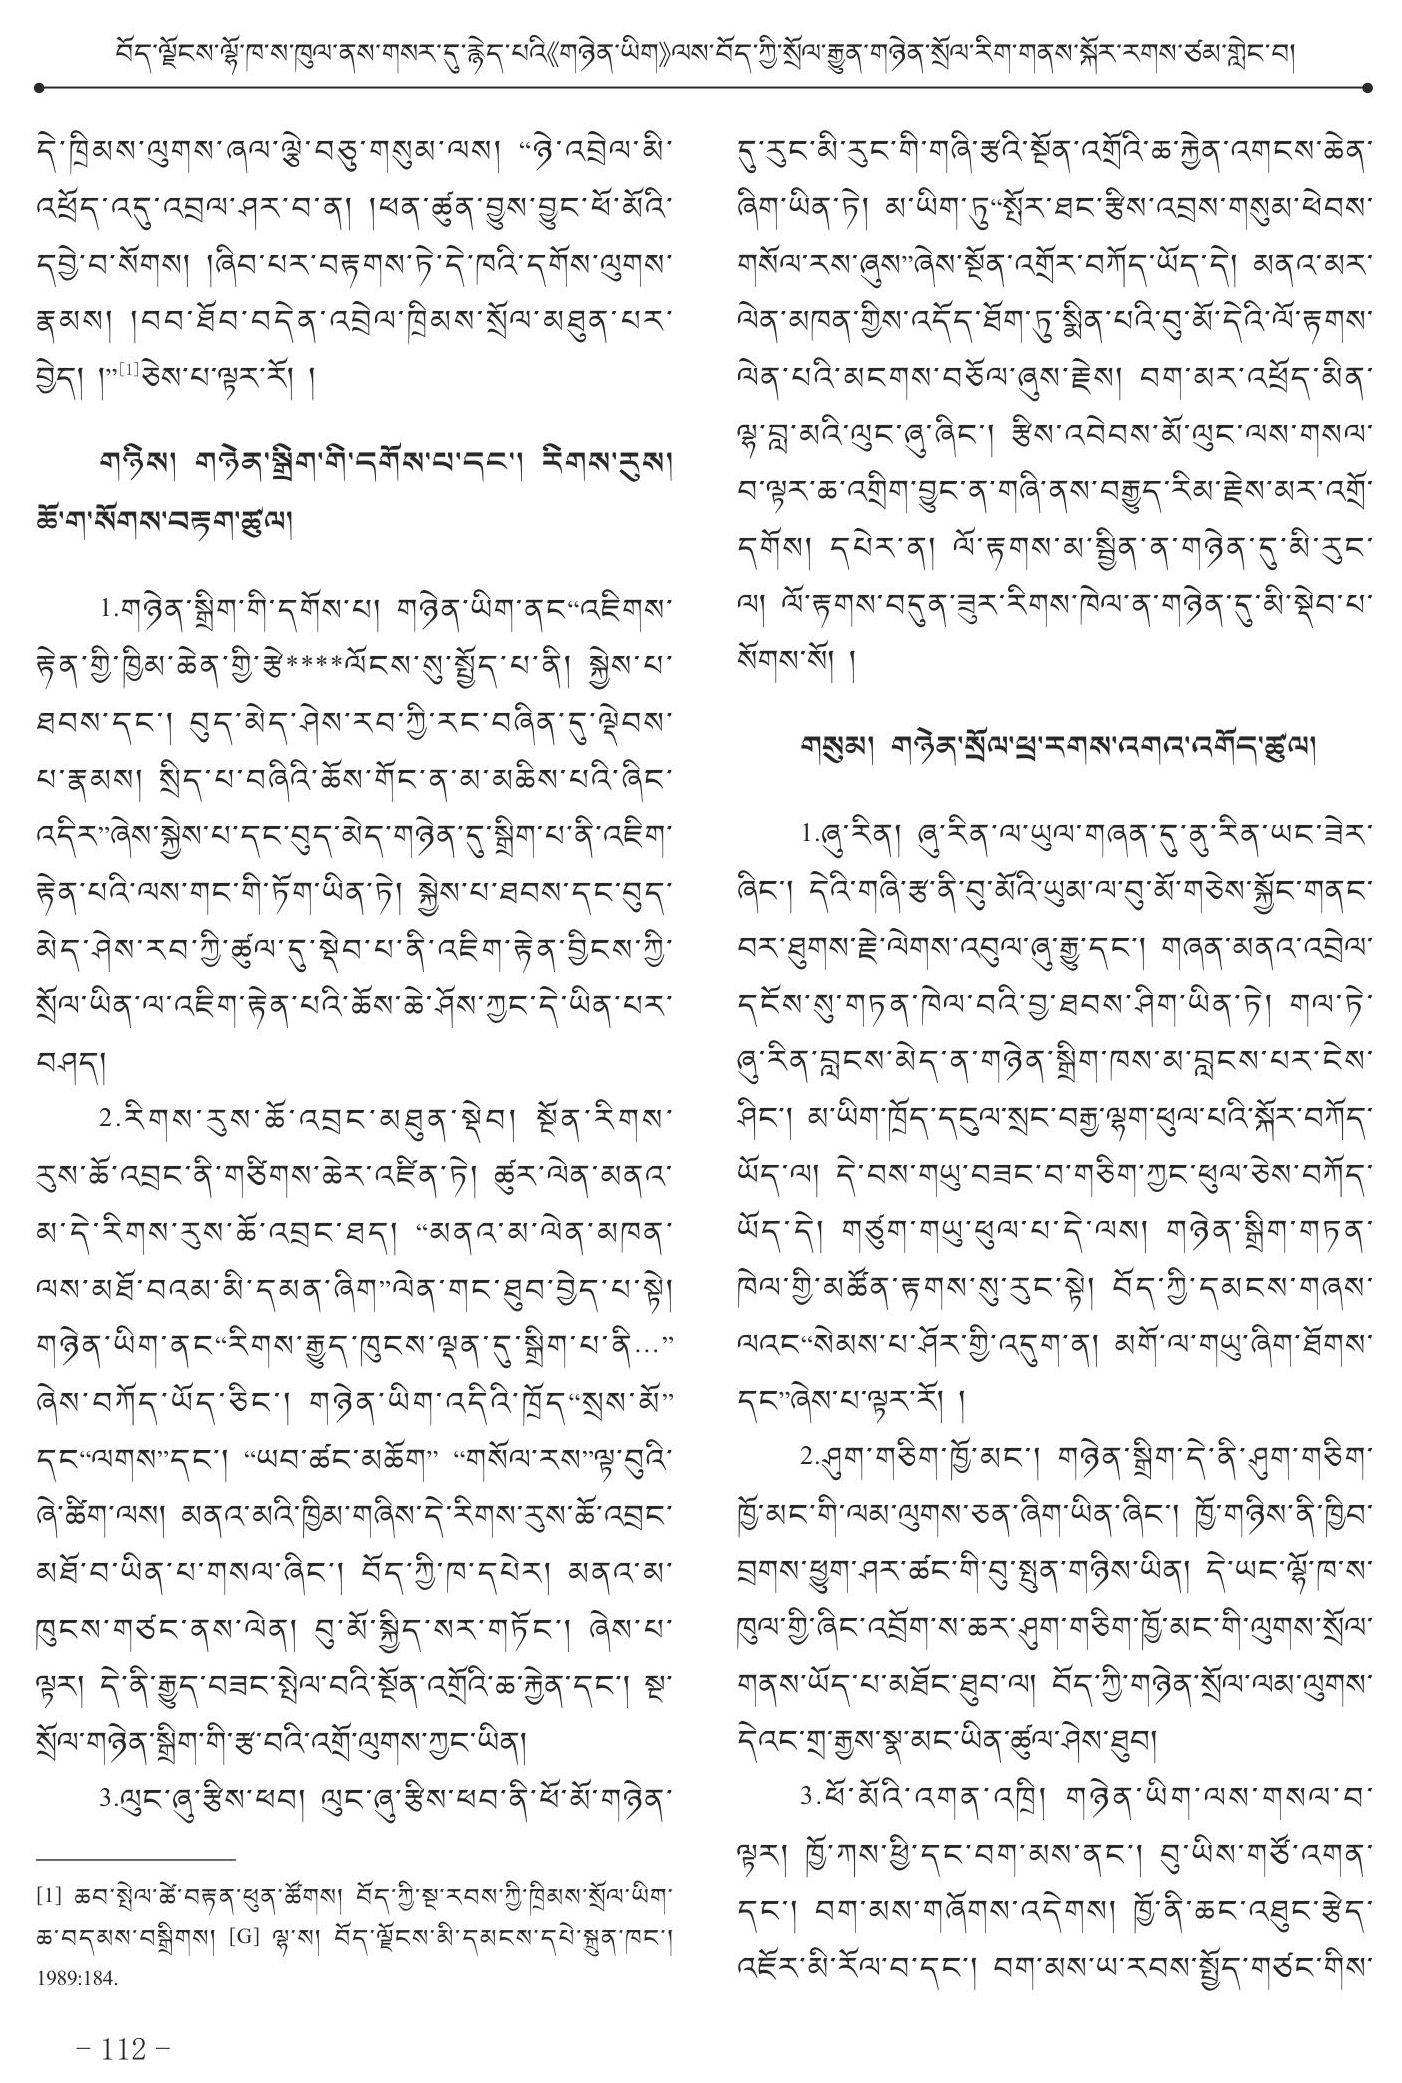 བོད་ལྗོངས་ལྷོ་ཁ་ས་ཁུལ་ནས་གསར་དུ་རྙེད་པའི《གཉེན་ཡིག》ལས་བོད་ཀྱི་སྲོལ་རྒྱུན་གཉེན་སྲོལ་རིག་གནས་སྐོར་རགས་ཙམ་གླེང་བ།
དེ་ཁྲིམས་ལུགས་ཞལ་ལྕེ་བཅུ་གསུམ་ལས། “ཉེ་འབྲེལ་མི་
འཕྲོད་འདུ་འབྲལ་ཤར་བ་ན། །ཕན་ཚུན་བྱུས་བྱུང་ཕོ་མོའི་
དབྱེ་བ་སོགས། །ཞིབ་པར་བརྟགས་ཏེ་དེ་ཁའི་དགོས་ལུགས་
རྣམས། །བབ་ཐོབ་བདེན་འབྲེལ་ཁྲིམས་སྲོལ་མཐུན་པར་
བྱེད། །”[1]ཅེས་པ་ལྟར་རོ། །
གཉིས། གཉེན་སྒྲིག་གི་དགོས་པ་དང་། རིགས་རུས།
ཚོ་ག་སོགས་བརྟག་ཚུལ།
1.གཉེན་སྒྲིག་གི་དགོས་པ། གཉེན་ཡིག་ནང“འཇིགས་
རྟེན་གྱི་ཁྱིམ་ཆེན་གྱི་རྩེ****ལོངས་སུ་སྤྱོད་པ་ནི། སྐྱེས་པ་
ཐབས་དང་། བུད་མེད་ཤེས་རབ་ཀྱི་རང་བཞིན་དུ་ལྡེབས་
པ་རྣམས། སྲིད་པ་བཞིའི་ཆོས་གོང་ན་མ་མཆིས་པའི་ཞིང་
འདིར”ཞེས་སྐྱེས་པ་དང་བུད་མེད་གཉེན་དུ་སྒྲིག་པ་ནི་འཇིག་
རྟེན་པའི་ལས་གང་གི་ཏོག་ཡིན་ཏེ། སྐྱེས་པ་ཐབས་དང་བུད་
མེད་ཤེས་རབ་ཀྱི་ཚུལ་དུ་སྡེབ་པ་ནི་འཇིག་རྟེན་བྱིངས་ཀྱི་
སྲོལ་ཡིན་ལ་འཇིག་རྟེན་པའི་ཆོས་ཆེ་ཤོས་ཀྱང་དེ་ཡིན་པར་
བཤད།
2.རིགས་རུས་ཆོ་འབྲང་མཐུན་སྡེབ། སྔོན་རིགས་
རུས་ཆོ་འབྲང་ནི་གཙིགས་ཆེར་འཛིན་ཏེ། ཚུར་ལེན་མནའ་
མ་དེ་རིགས་རུས་ཆོ་འབྲང་ཐད། “མནའ་མ་ལེན་མཁན་
ལས་མཐོ་བའམ་མི་དམན་ཞིག”ལེན་གང་ཐུབ་བྱེད་པ་སྟེ།
གཉེན་ཡིག་ནང“རིགས་རྒྱུད་ཁུངས་ལྡན་དུ་སྒྲིག་པ་ནི…”
ཞེས་བཀོད་ཡོད་ཅིང་། གཉེན་ཡིག་འདིའི་ཁྲོད“སྲས་མོ”
དང“ལགས”དང་། “ཡབ་ཚང་མཆོག” “གསོལ་རས”ལྟ་བུའི་
ཞེ་ཚིག་ལས། མནའ་མའི་ཁྱིམ་གཞིས་དེ་རིགས་རུས་ཆོ་འབྲང་
མཐོ་བ་ཡིན་པ་གསལ་ཞིང་། བོད་ཀྱི་ཁ་དཔེར། མནའ་མ་
ཁུངས་གཙང་ནས་ལེན། བུ་མོ་སྐྱིད་སར་གཏོང་། ཞེས་པ་
ལྟར། དེ་ནི་རྒྱུད་བཟང་སྤེལ་བའི་སྔོན་འགྲོའི་ཆ་རྐྱེན་དང་། སྔ་
སྲོལ་གཉེན་སྒྲིག་གི་རྩ་བའི་འགྲོ་ལུགས་ཀྱང་ཡིན།
3.ལུང་ཞུ་རྩིས་ཕབ། ལུང་ཞུ་རྩིས་ཕབ་ནི་ཕོ་མོ་གཉེན་
[1] ཆབ་སྤེལ་ཚེ་བརྟན་ཕུན་ཚོགས། བོད་ཀྱི་སྔ་རབས་ཀྱི་ཁྲིམས་སྲོལ་ཡིག་
ཆ་བདམས་བསྒྲིགས། [G] ལྷ་ས། བོད་ལྗོངས་མི་དམངས་དཔེ་སྐྲུན་ཁང་།
1989:184.
– 112 –
དུ་རུང་མི་རུང་གི་གཞི་རྩའི་སྔོན་འགྲོའི་ཆ་རྐྱེན་འགངས་ཆེན་
ཞིག་ཡིན་ཏེ། མ་ཡིག་ཏུ“སྤོར་ཐང་རྩིས་འབྲས་གསུམ་ཕེབས་
གསོལ་རས་ཞུས”ཞེས་སྔོན་འགྲོར་བཀོད་ཡོད་དེ། མནའ་མར་
ལེན་མཁན་གྱིས་འདོད་ཐོག་ཏུ་སྨིན་པའི་བུ་མོ་དེའི་ལོ་རྟགས་
ལེན་པའི་མངགས་བཅོལ་ཞུས་རྗེས། བག་མར་འཕྲོད་མིན་
ལྷ་བླ་མའི་ལུང་ཞུ་ཞིང་། རྩིས་འབེབས་མོ་ལུང་ལས་གསལ་
བ་ལྟར་ཆ་འགྲིག་བྱུང་ན་གཞི་ནས་བརྒྱུད་རིམ་རྗེས་མར་འགྲོ་
དགོས། དཔེར་ན། ལོ་རྟགས་མ་སྦྱིན་ན་གཉེན་དུ་མི་རུང་
ལ། ལོ་རྟགས་བདུན་ཟུར་རིགས་ཁེལ་ན་གཉེན་དུ་མི་སྡེབ་པ་
སོགས་སོ། །
གསུམ། གཉེན་སྲོལ་ཕྲ་རགས་འགའ་འགོད་ཚུལ།
1.ཞུ་རིན། ཞུ་རིན་ལ་ཡུལ་གཞན་དུ་ནུ་རིན་ཡང་ཟེར་
ཞིང་། དེའི་གཞི་རྩ་ནི་བུ་མོའི་ཡུམ་ལ་བུ་མོ་གཅེས་སྐྱོང་གནང་
བར་ཐུགས་རྗེ་ལེགས་འབུལ་ཞུ་རྒྱུ་དང་། གཞན་མནའ་འབྲེལ་
དངོས་སུ་གཏན་ཁེལ་བའི་བྱ་ཐབས་ཤིག་ཡིན་ཏེ། གལ་ཏེ་
ཞུ་རིན་བླངས་མེད་ན་གཉེན་སྒྲིག་ཁས་མ་བླངས་པར་ངེས་
ཤིང་། མ་ཡིག་ཁྲོད་དངུལ་སྲང་བརྒྱ་ལྷག་ཕུལ་པའི་སྐོར་བཀོད་
ཡོད་ལ། དེ་བས་གཡུ་བཟང་བ་གཅིག་ཀྱང་ཕུལ་ཅེས་བཀོད་
ཡོད་དེ། གཙུག་གཡུ་ཕུལ་པ་དེ་ལས། གཉེན་སྒྲིག་གཏན་
ཁེལ་གྱི་མཚོན་རྟགས་སུ་རུང་སྟེ། བོད་ཀྱི་དམངས་གཞས་
ལའང“སེམས་པ་ཤོར་གྱི་འདུག་ན། མགོ་ལ་གཡུ་ཞིག་ཐོགས་
དང”ཞེས་པ་ལྟར་རོ། །
2.ཤུག་གཅིག་ཁྱོ་མང་། གཉེན་སྒྲིག་དེ་ནི་ཤུག་གཅིག་
ཁྱོ་མང་གི་ལམ་ལུགས་ཅན་ཞིག་ཡིན་ཞིང་། ཁྱོ་གཉིས་ནི་ཁྱིབ་
བྲགས་ཕྱུག་ཤར་ཚང་གི་བུ་སྤུན་གཉིས་ཡིན། དེ་ཡང་ལྷོ་ཁ་ས་
ཁུལ་གྱི་ཞིང་འབྲོག་ས་ཆར་ཤུག་གཅིག་ཁྱོ་མང་གི་ལུགས་སྲོལ་
གནས་ཡོད་པ་མཐོང་ཐུབ་ལ། བོད་ཀྱི་གཉེན་སྲོལ་ལམ་ལུགས་
དེའང་གྲ་རྒྱས་སྣ་མང་ཡིན་ཚུལ་ཤེས་ཐུབ།
3.ཕོ་མོའི་འགན་འཁྲི། གཉེན་ཡིག་ལས་གསལ་བ་
ལྟར། ཁྱོ་ཀས་ཕྱི་དང་བག་མས་ནང་། བུ་ཡིས་གཙོ་འགན་
དང་། བག་མས་གཞོགས་འདེགས། ཁྱོ་ནི་ཆང་འཐུང་རྩེད་
འཇོར་མི་རོལ་བ་དང་། བག་མས་ཡ་རབས་སྤྱོད་གཙང་གིས་